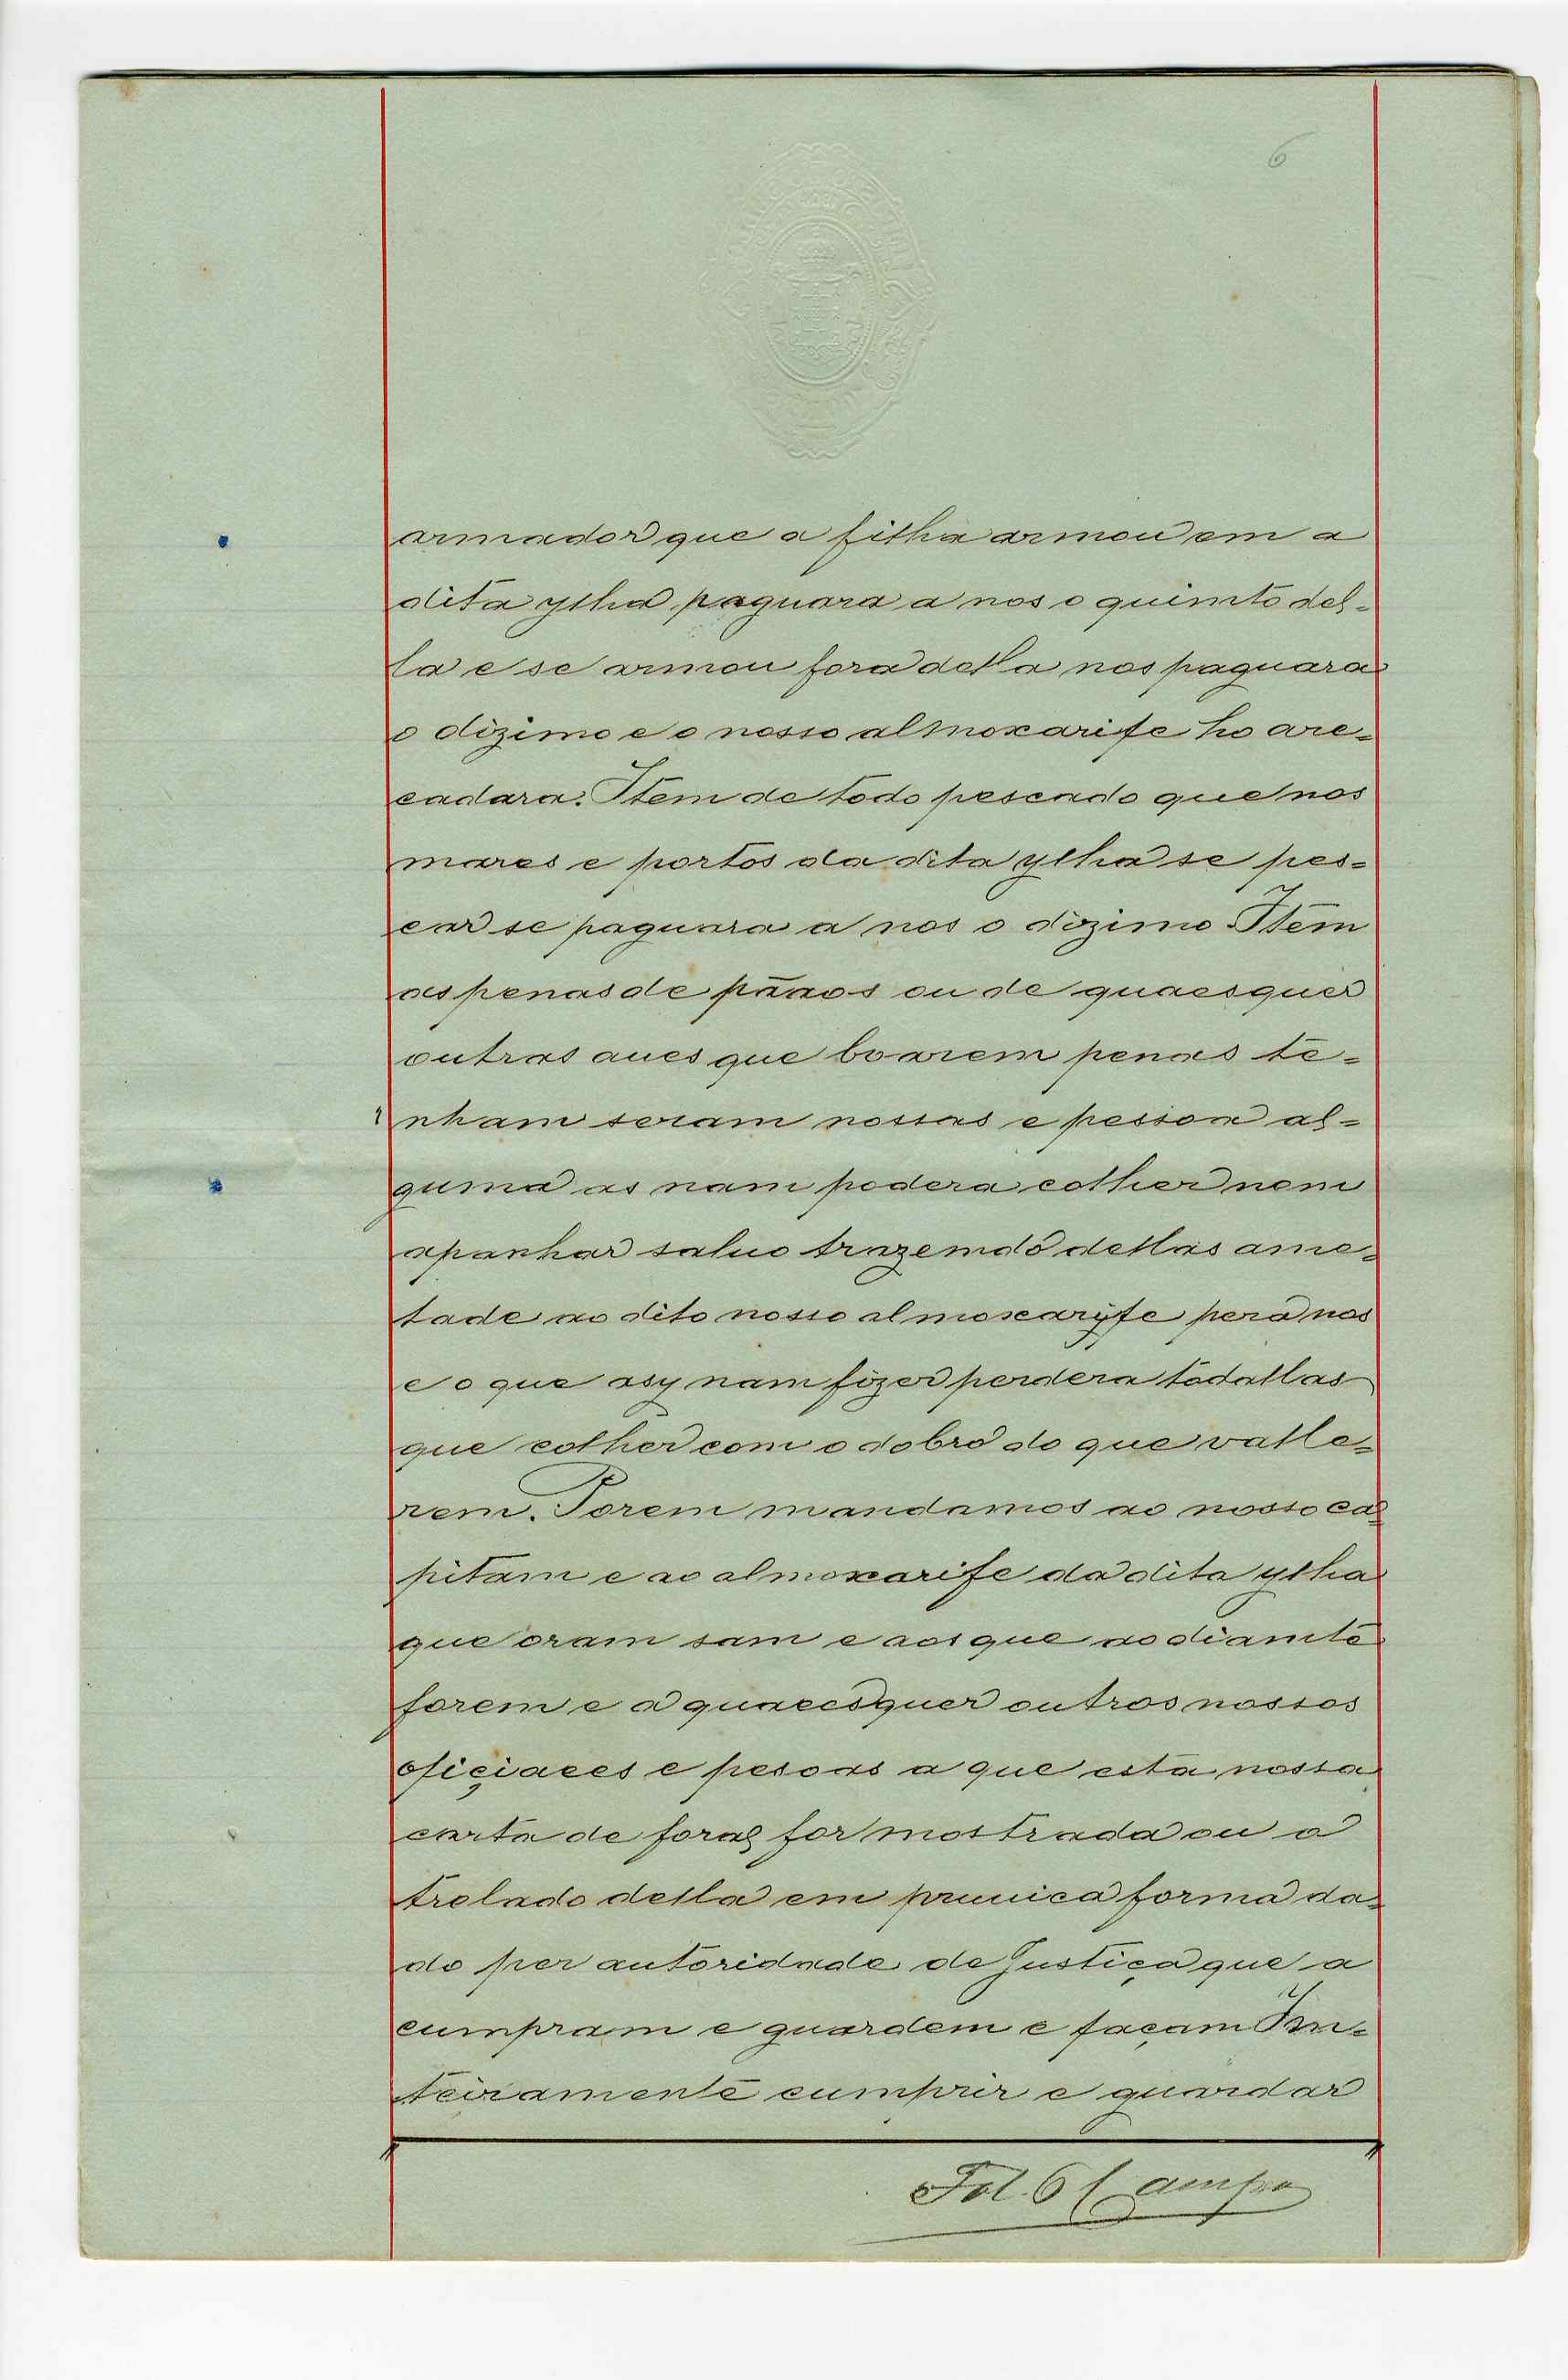 6
armador que a filha armou em a
dita ylha paguara a nos o quimto del-
la e se armou fora della nos paguara
o dizimo e o nosso almoxarife ho are-
cadara. Item de todo pescado que nos
mares e portos da dita ylha se pes-
car se paguara a nos o dizimo. Item
as penas de pãaos ou de quaesquer
outras aues que boarem penas te-
nham seram nossas e pessoa al-
guma as nam podera colher nem
apanhar saluo trazemdo dellas ame-
tade ao dito nosso almoxaryfe pera nos
e o que asy nam fizer perdera todallas
que colher com o dobro do que valle-
rem. Porem mandamos ao nosso ca-
pitam e ao almoxarife da dita ylha
que oram sam e aos que ao diamte
forem e a quaeesquer outros nossos
ofiçiaees e pesoas a que esta nossa
carta de foral for mostrada ou o
trelado della em pruuica forma da-
do per autoridade de Justiça que a
cumpram e guardem e façam Im-
teiramente cumprir e guardar
Fol. 6 Campos